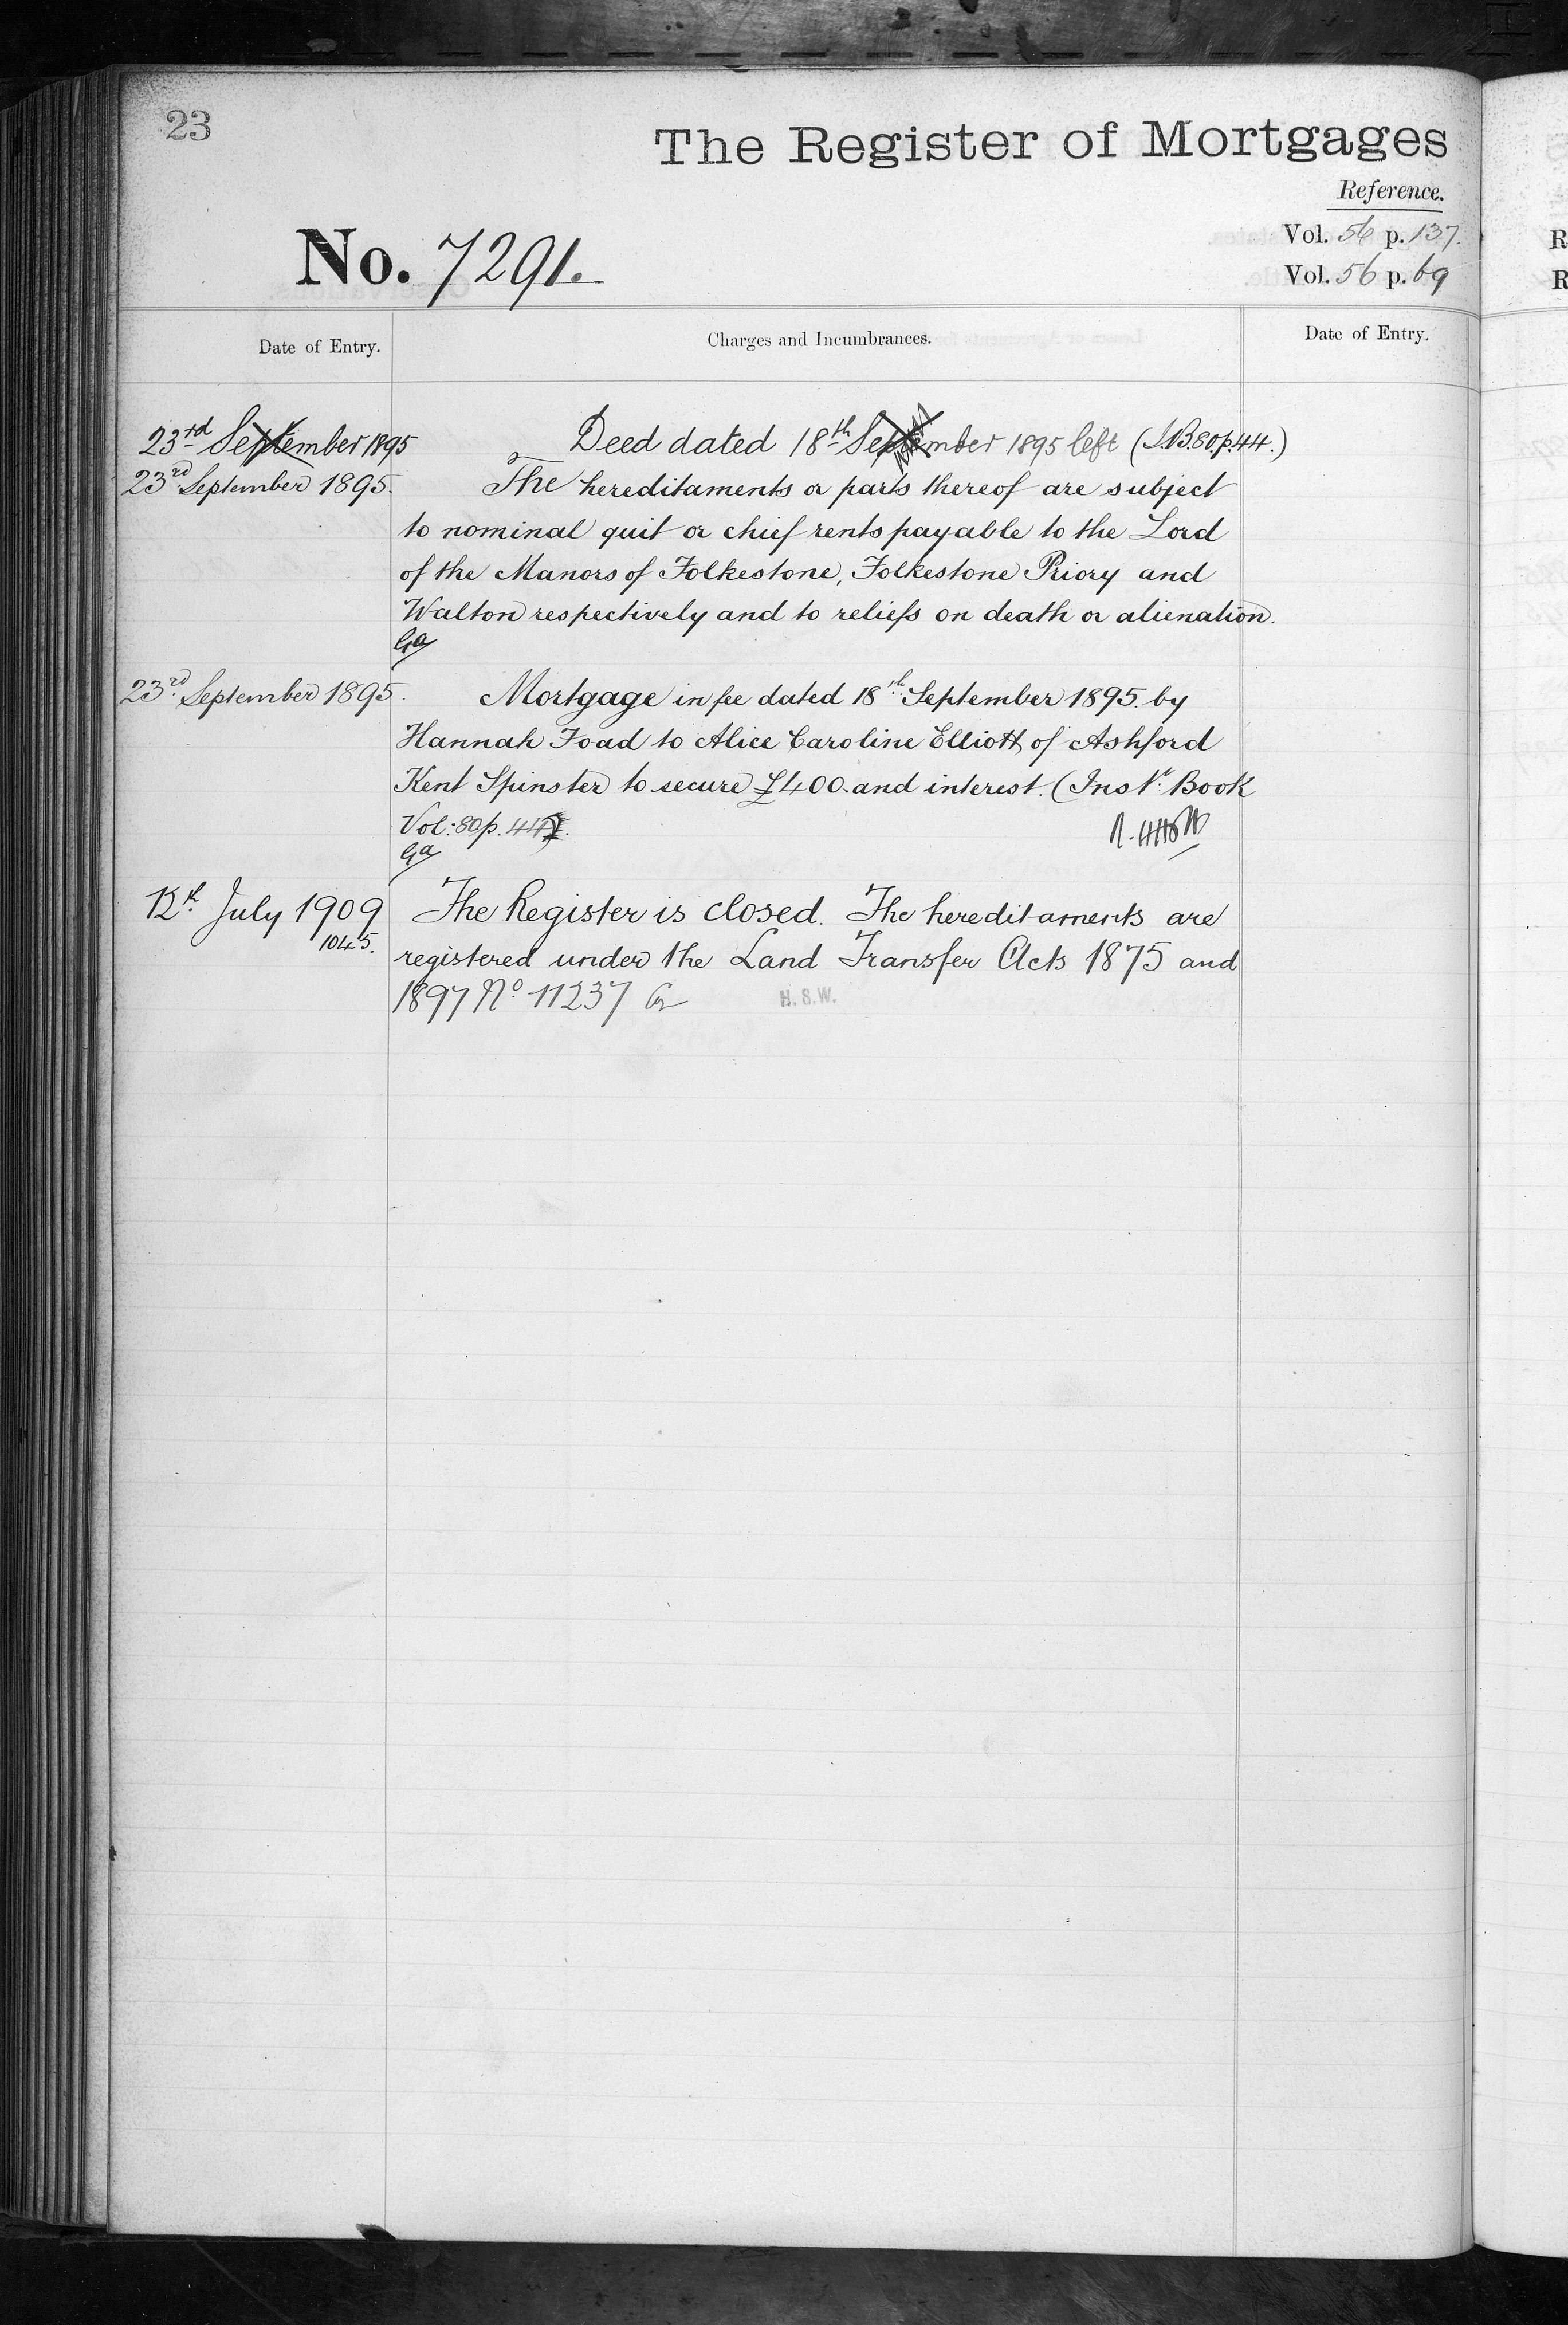 23
The Register of Mortgages
Reference.
No. 7291.
Vol. 56 p. 137.
Vol. 56 p. 69
Date of Entry.
Charges and Incumbrances.
Date of Entry.
23rd September 1895
Deed dated 18th September 1895 left (I.B. 80 p. 44.)
23rd September 1895.
The hereditaments or parts thereof are subject
to nominal quit or chief rents payable to the Lord
of the Manors of Folkestone, Folkestone Priory and
Walton respectively and to reliefs on death or alienation.
23rd September 1895.
Mortgage in fee dated 18th September 1895 by
Hannah Foad to Alice Caroline Elliott of Ashford
Kent Spinster to secure £400 and interest. (Inst. Book
Vol: 80 p. 44).
12th July 1909
1045.
The Register is closed. The hereditaments are
registered under the Land Transfer Acts 1875 and
1897 No 11237
H. S. W.